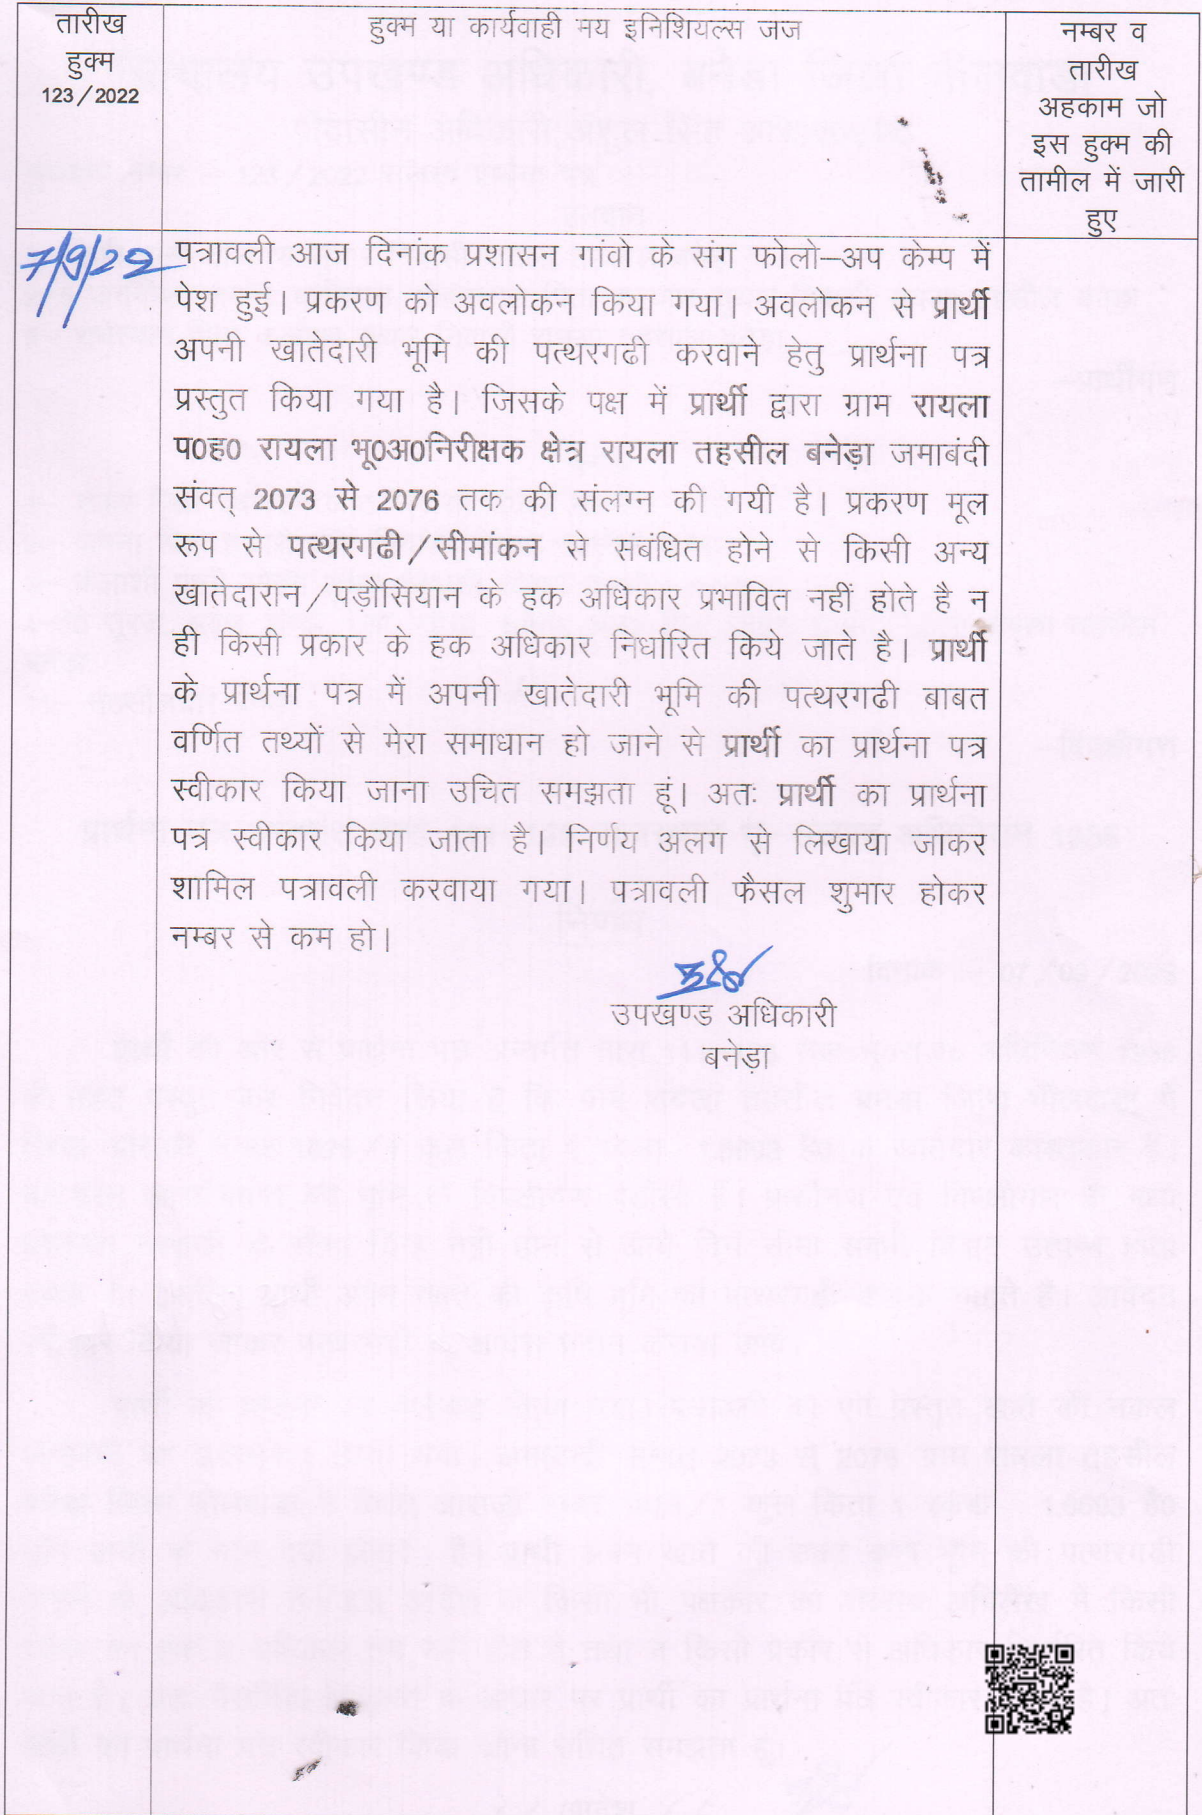 तारीख
हुक्म
123/2022
हुक्म या कार्यवाही मय इनिशियल्स जज
नम्बर व
तारीख
अहकाम जो
इस हुक्म की
तामील में जारी
हुए
7/9/22
पत्रावली आज दिनांक प्रशासन गांवो के संग फोलो–अप केम्प में
पेश हुई। प्रकरण को अवलोकन किया गया। अवलोकन से प्रार्थी
अपनी खातेदारी भूमि की पत्थरगढी करवाने हेतु प्रार्थना पत्र
प्रस्तुत किया गया है। जिसके पक्ष में प्रार्थी द्वारा ग्राम रायला
प0ह0 रायला भू0अ0निरीक्षक क्षेत्र रायला तहसील बनेड़ा जमाबंदी
संवत् 2073 से 2076 तक की संलग्न की गयी है। प्रकरण मूल
रूप से पत्थरगढी/सीमांकन से संबंधित होने से किसी अन्य
खातेदारान/पड़ौसियान के हक अधिकार प्रभावित नहीं होते है न
ही किसी प्रकार के हक अधिकार निर्धारित किये जाते है। प्रार्थी
के प्रार्थना पत्र में अपनी खातेदारी भूमि की पत्थरगढी बाबत
वर्णित तथ्यों से मेरा समाधान हो जाने से प्रार्थी का प्रार्थना पत्र
स्वीकार किया जाना उचित समझता हूं। अतः प्रार्थी का प्रार्थना
पत्र स्वीकार किया जाता है। निर्णय अलग से लिखाया जाकर
शामिल पत्रावली करवाया गया। पत्रावली फैसल शुमार होकर
नम्बर से कम हो।
उपखण्ड अधिकारी
बनेडा